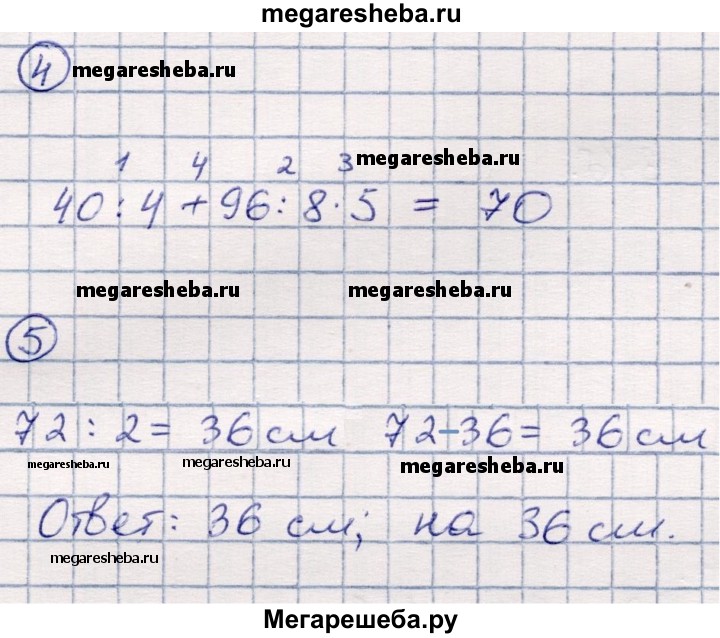 megaresheba.ru
4 megaresheba.ru
1 4 2 3 megaresheba.ru
40:4+96:8·5 = 70
megaresheba.ru megaresheba.ru
5
72:2= 36 см 72-36= 36 см
megaresheba.ru megaresheba.ru megaresheba.ru
Ответ: 36 см; на 36 см.
megaresheba.ru
Мегарешеба.ру